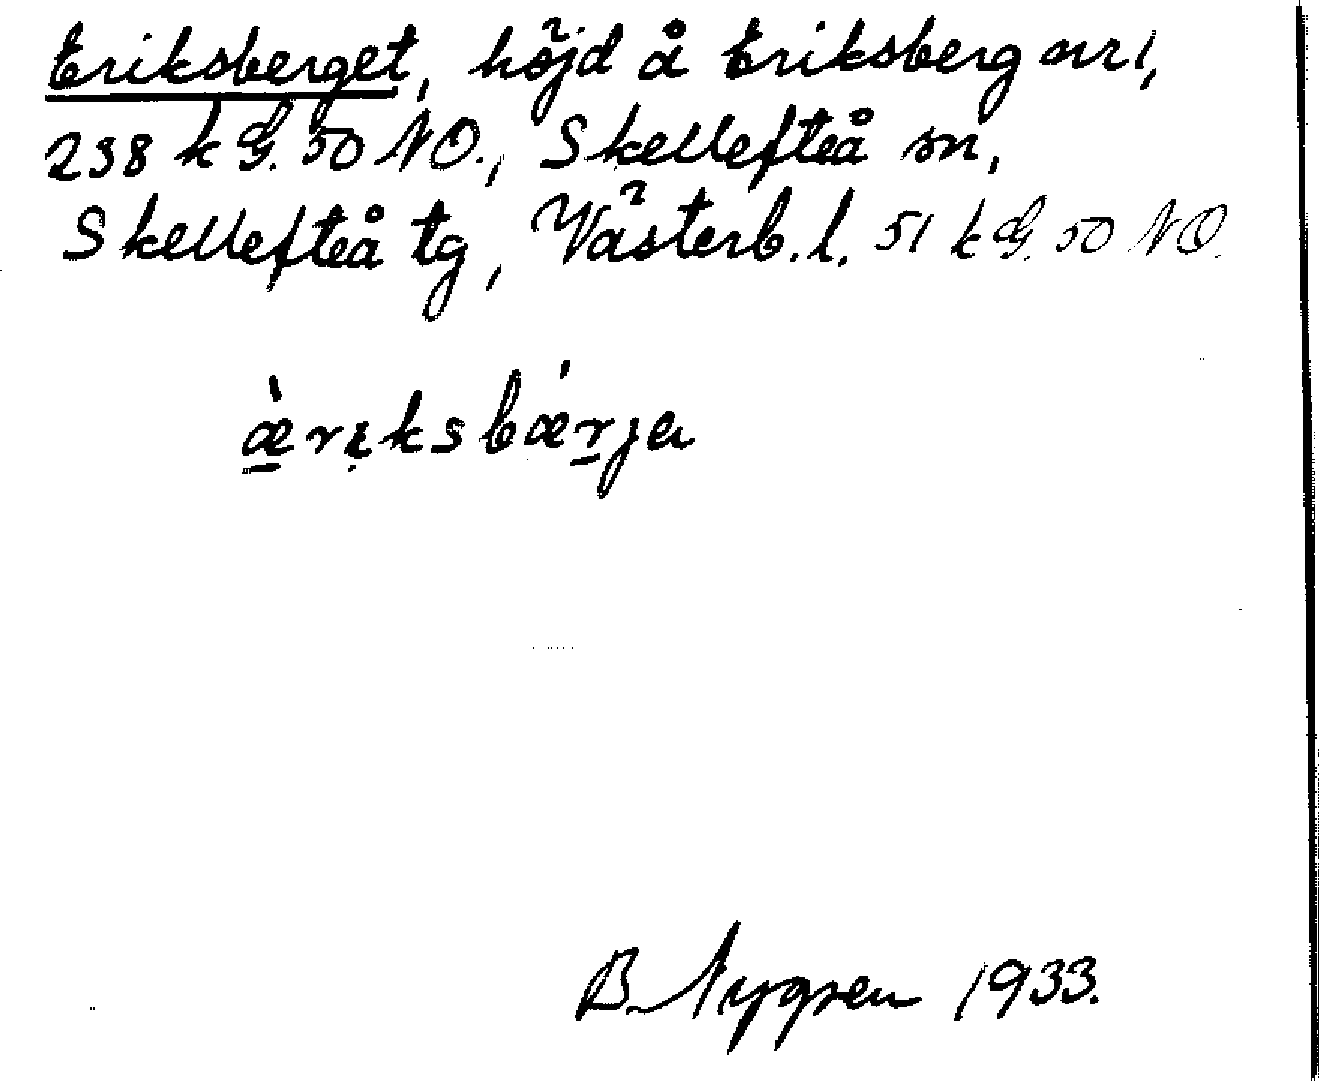 Eriksberget, höjd å Eriksberg nr 1,
238 k G. 50 NO., Skellefteå sn,
Skellefteå tg, Västerb. l. 51 k G. 50 NO.
æ̀riksbærja
B. Nygren 1933.